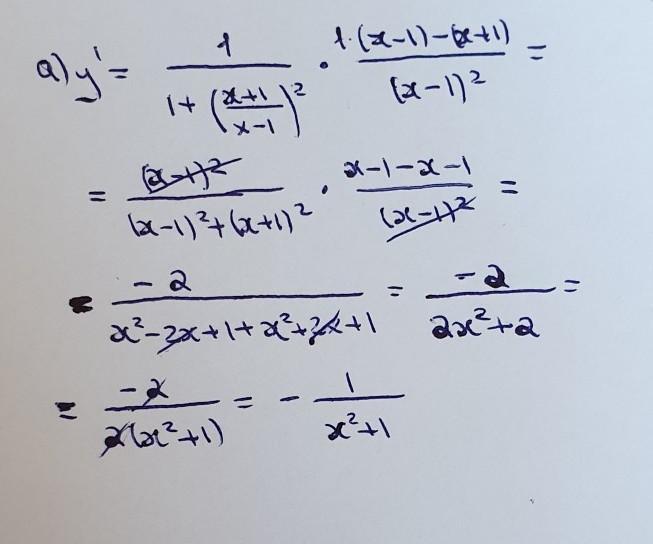 a) y' = 1 / (1 + ((x+1)/(x-1))²) · (1·(x-1) - (x+1)) / (x-1)² =
= (x-1)² / ((x-1)² + (x+1)²) · (x-1-x-1) / (x-1)² =
= -2 / (x² - 2x + 1 + x² + 2x + 1) = -2 / (2x² + 2) =
= -2 / (2(x² + 1)) = - 1 / (x² + 1)